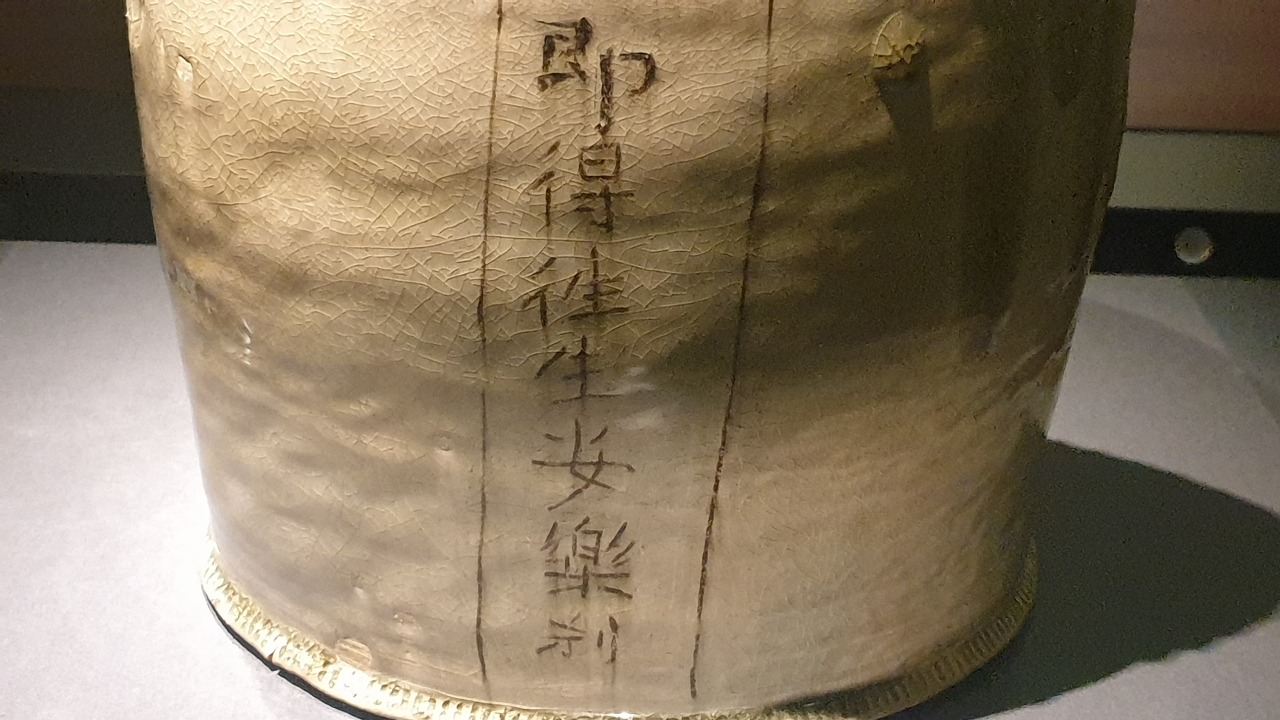 即得往生安樂刹